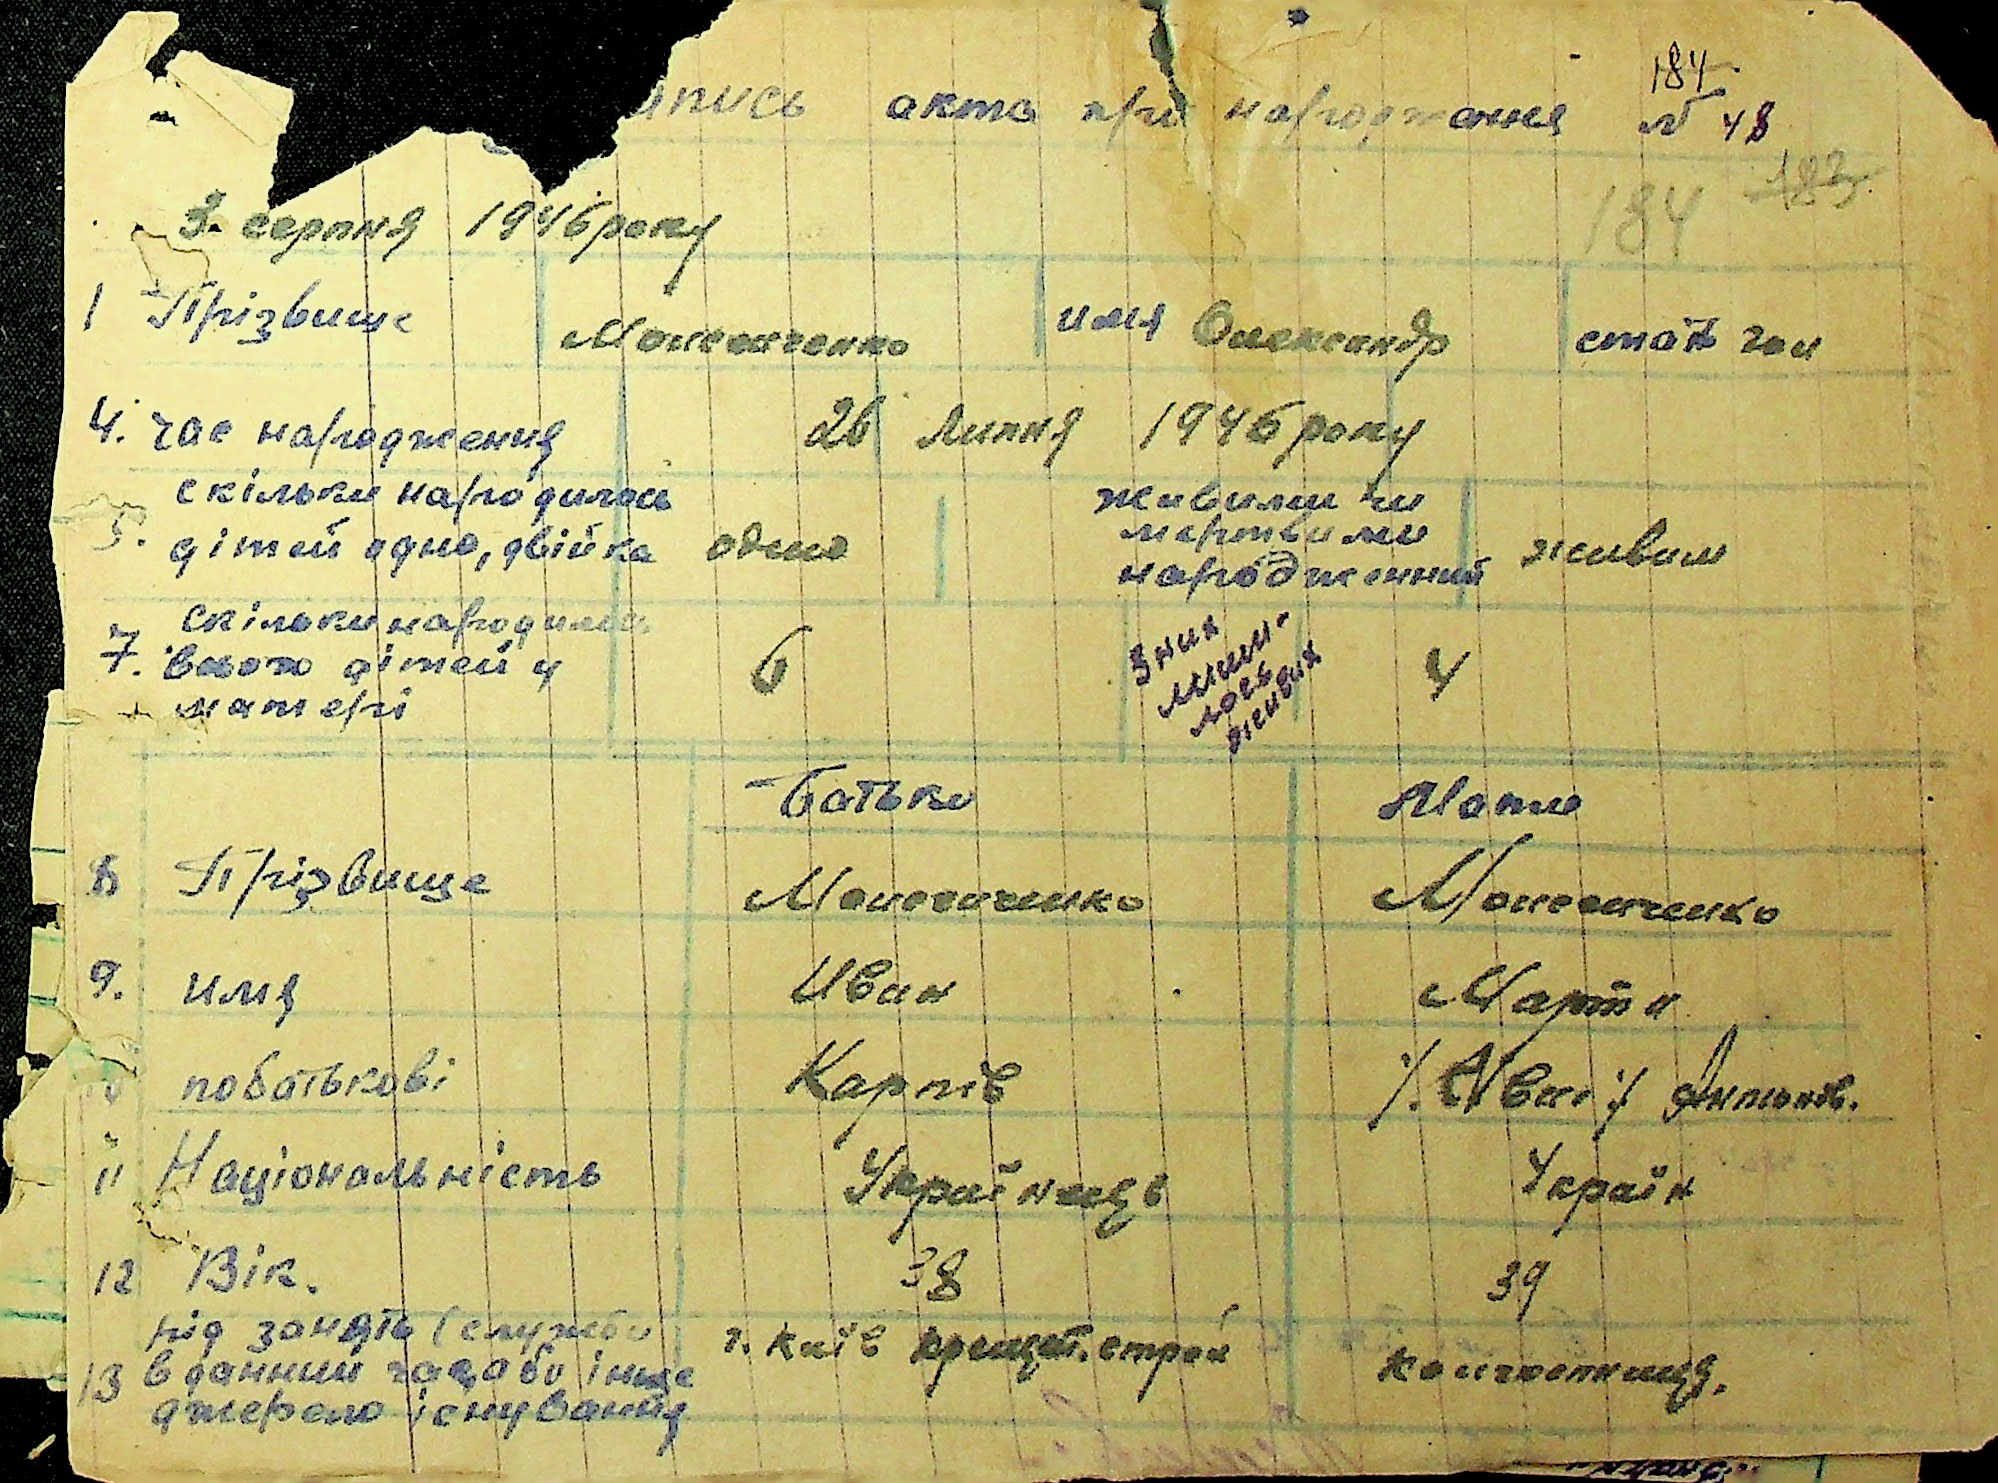 апись акта при народженя № 48
184
184 183
3 серпня 1946 року
1 Прізвище Моисеенченко имя Олександр стать чол
4. час народження 26 липня 1946 року
скільки народилось живими чи
5. дітей одно, двійка одно мертвими живим
народженний
скільки народилось Зних
7. всього дітей у 6 лишилось 4
матері живих
Батько Мати
8 Прізвище
9. имя Иван Марта
побатькові Карпів /. Иван / Антонів.
11 Національність Українець Україн
12 Вік. 38 39
рід занять (служби г. Київ крещат. строй колгоспниця.
13 в данний час, або інше
джерело існування